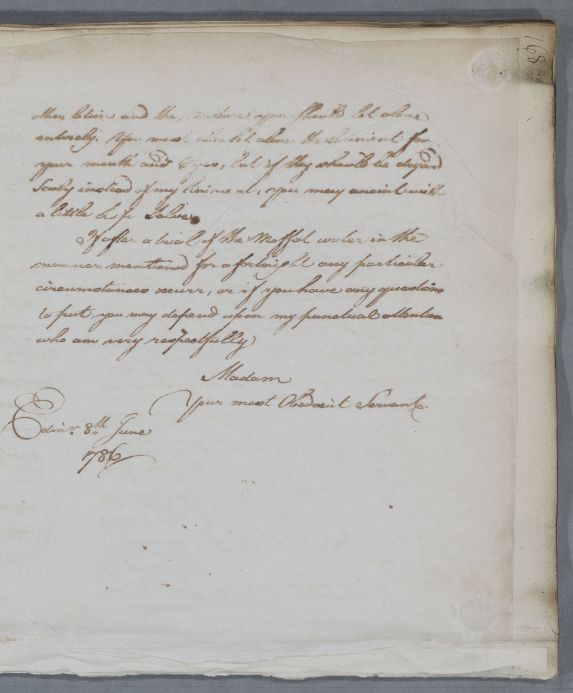 other lotion and the you should let alone
entirely. You must also let alone the Liniment for
your mouth and Eyes, but if they should be dry and
Scaly instead of my liniment, you may anoint with
a little Lip Salve.
If after a trial of the Moffat water in the
manner mentioned for a fortnight any particular
circumstances occurr, or if you have any questions
to put, you may depend upon my punctual attention
who am very respectfully
Madam
Your most Obedient Servant.
Edinr. 8th June
1786
168